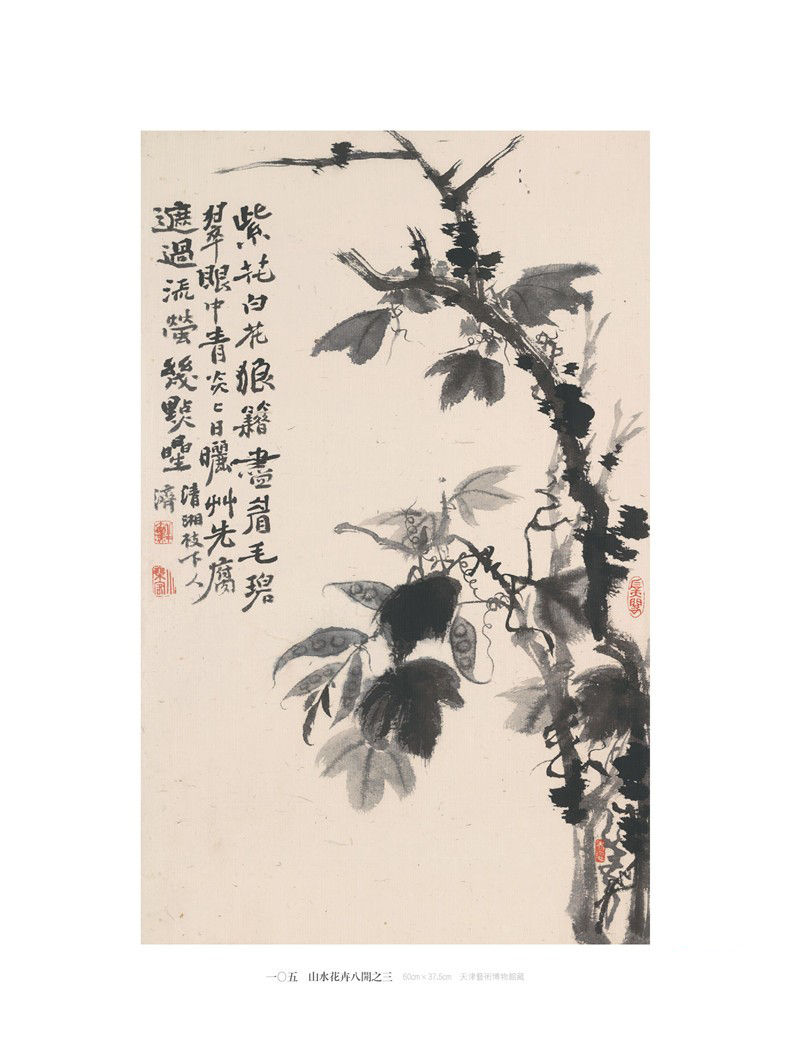 紫花白花狼籍盡眉毛碧
翠眼中青炎〻日曬艸先腐
遮過流螢幾點曐
清湘枝下人
濟
一〇五 山水花卉八開之三 60cm×37.5cm 天津藝術博物館藏